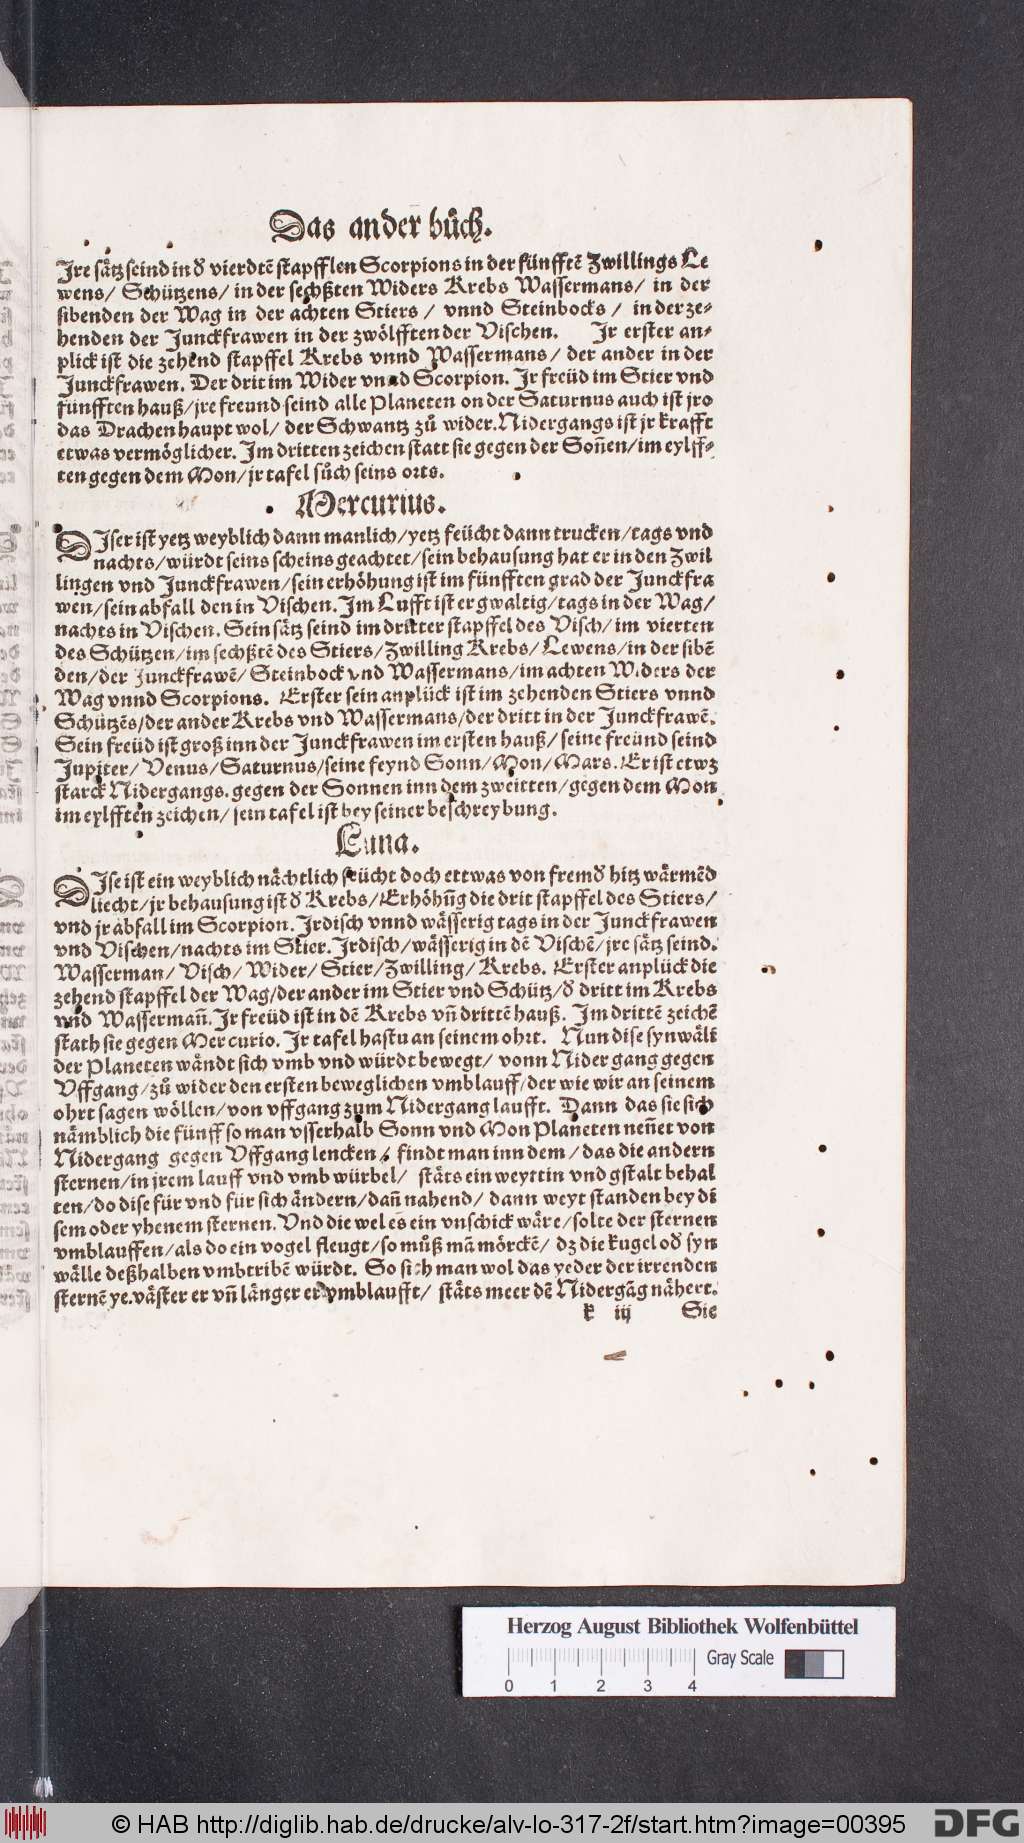 Das ander bůch.
Jre sätz seind in d̕ vierdtē stapfflen Scorpions in der fünfftē Zwillings Le
wens/ Schützens/ in der sechßten Widers Krebs Wassermans/ in der
sibenden der Wag in der achten Stiers / vnnd Steinbocks / in der ze-
henden der Junckfrawen in der zwölfften der Vischen. Jr erster an-
plick ist die zehend stapffel Krebs vnnd Wassermans/ der ander in der
Junckfrawen. Der drit im Wider vnnd Scorpion. Jr freüd im Stier vnd
fünfften hauß/jre freund seind alle Planeten on der Saturnus auch ist jro
das Drachen haupt wol/ der Schwantz zů wider. Nidergangs ist jr krafft
etwas vermöglicher. Jm dritten zeichen statt sie gegen der Soñen/im eylff-
ten gegen dem Mon/jr tafel sůch seins orts.
Mercurius.
DJser ist yetz weyblich dann manlich/yetz feücht dann trucken/tags vnd
nachts/würdt seins scheins geachtet/sein behausung hat er in den Zwil
lingen vnd Junckfrawen/sein erhöhung ist im fünfften grad der Junckfra
wen/sein abfall den in Vischen. Jm Lufft ist er gwaltig/tags in der Wag/
nachts in Vischen. Sein sätz seind im dritter stapffel des Visch/im vierten
des Schützen/im sechßtē des Stiers/Zwilling Krebs/Lewens/in der sibē
den/der Junckfrawē/Steinbock vnd Wassermans/im achten Widers der
Wag vnnd Scorpions. Erster sein anplück ist im zehenden Stiers vnnd
Schützēs/der ander Krebs vnd Wassermans/der dritt in der Junckfrawē.
Sein freüd ist groß inn der Junckfrawen im ersten hauß/ seine freünd seind
Jupiter/ Venus/Saturnus/seine feynd Sonn/Mon/Mars. Er ist etwz
starck Nidergangs. gegen der Sonnen inn dem zweitten/gegen dem Mon
im eylfften zeichen/ sein tafel ist bey seiner beschreybung.
Luna.
DJse ist ein weyblich nächtlich feücht doch ettwas von fremd̕ hitz wärmēd
liecht/jr behausung ist d̕ Krebs/Erhöhūg die drit stapffel des Stiers/
vnd jr abfall im Scorpion. Jrdisch vnnd wässerig tags in der Junckfrawen
vnd Vischen/nachts im Stier. Jrdisch/wässerig in dē Vischē/jre sätz seind.
Wasserman/ Visch/ Wider/ Stier/Zwilling/ Krebs. Erster anplück die
zehend stapffel der Wag/der ander im Stier vnd Schütz/d̕ dritt im Krebs
vnd Wassermañ. Jr freüd ist in dē Krebs vñ drittē hauß. Jm drittē zeichē
stath sie gegen Mercurio. Jr tafel hastu an seinem ohrt. Nun dise synwäli
der Planeten wändt sich vmb vnd würdt bewegt/ vonn Nidergang gegen
Vffgang/zů wider den ersten beweglichen vmblauff/der wie wir an seinem
ohrt sagen wöllen/von vffgang zum Nidergang laufft. Dann das sie sich
nämblich die fünff so man vsserhalb Sonn vnd Mon Planeten neñet von
Nidergang gegen Vffgang lencken/ findt man inn dem/das die andern
sternen/in jrem lauff vnd vmb würbel/ stäts ein weyttin vnd gstalt behal
ten/do dise für vnd für sich ändern/dañ nahend/ dann weyt standen bey di
sem oder yhenem sternen. Vnd die wel es ein vnschick wäre/solte der sternen
vmblauffen/als do ein vogel fleugt/so můß mā mörckē/ dz die kugel od̕ syn
wälle deßhalben vmbtribē würdt. So sich man wol das yeder der irrenden
sternē ye.väster er vñ länger er vmblaufft/ stäts meer dē Nidergāg nähert.
k iij Sie
Herzog August Bibliothek Wolfenbüttel
Gray Scale
0 1 2 3 4
© HAB http://diglib.hab.de/drucke/alv-lo-317-2f/start.htm?image=00395
DFG